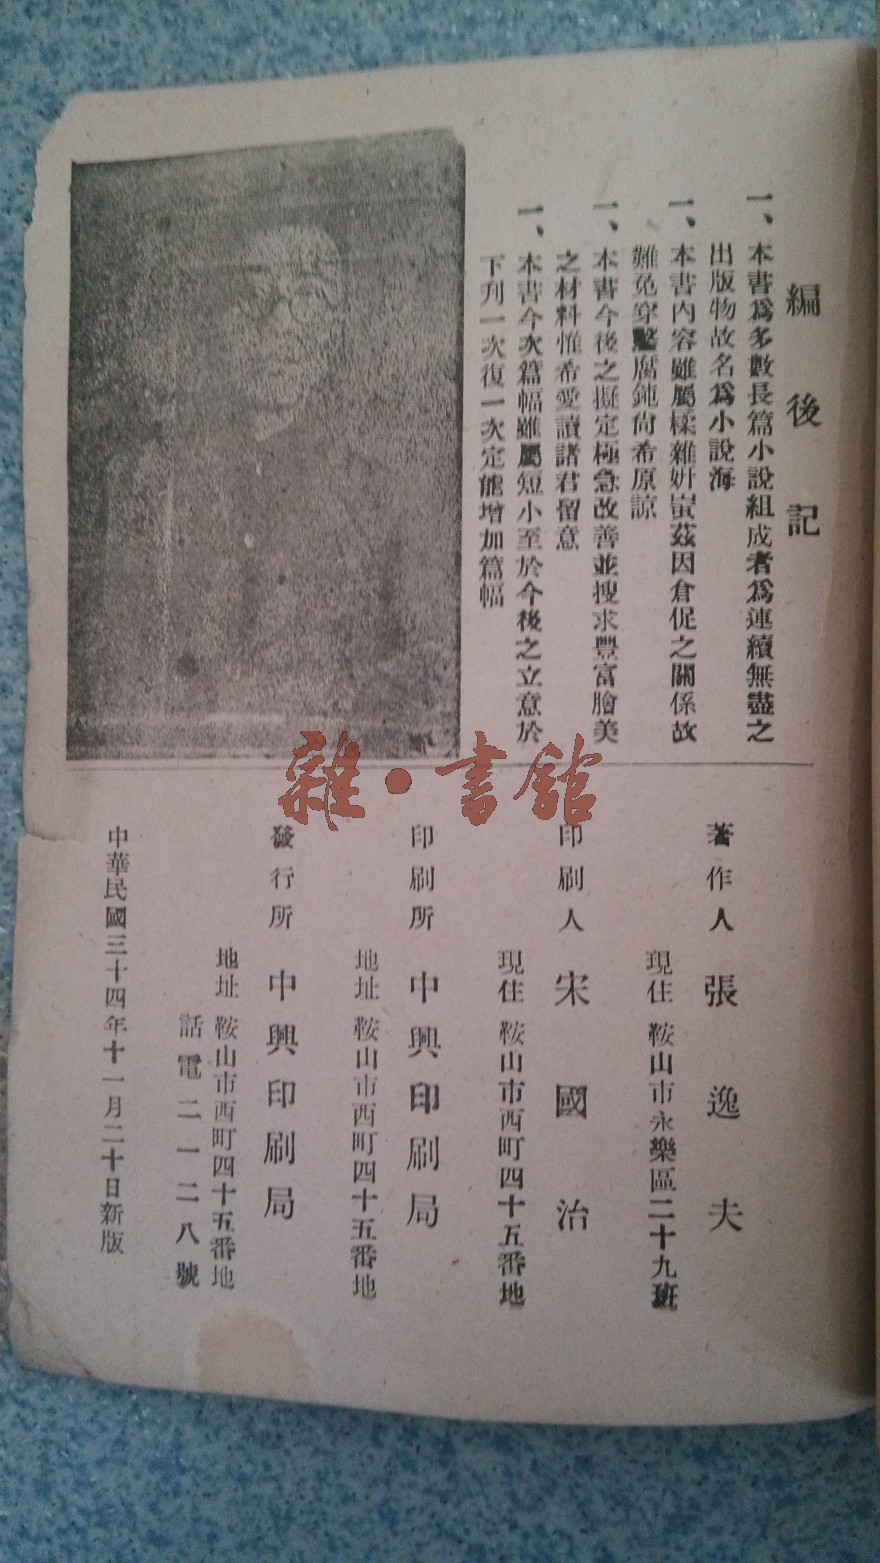 編後記
一、本書爲多數長篇小說組成者爲連續無盡之
出版物故名爲小說海
一、本書内容雖屬糅雜姸蚩茲因倉促之關係故
難免穿鑿腐鈍尙希原諒
一、本書今後之擬定極急改善並搜求豐富膾美
之材料惟希愛讀諸君留意
一、本書今次篇幅雖屬短小至於今後之立意於
下刋一次復一次定能增加篇幅
著作人 張逸夫
現住 鞍山市永樂區二十九班
印刷人 宋國治
現住 鞍山市西町四十五番地
印刷所 中興印刷局
地址 鞍山市西町四十五番地
發行所 中興印刷局
地址 鞍山市西町四十五番地
話電二一二八號
中華民國三十四年十一月二十日新版
雜·書館